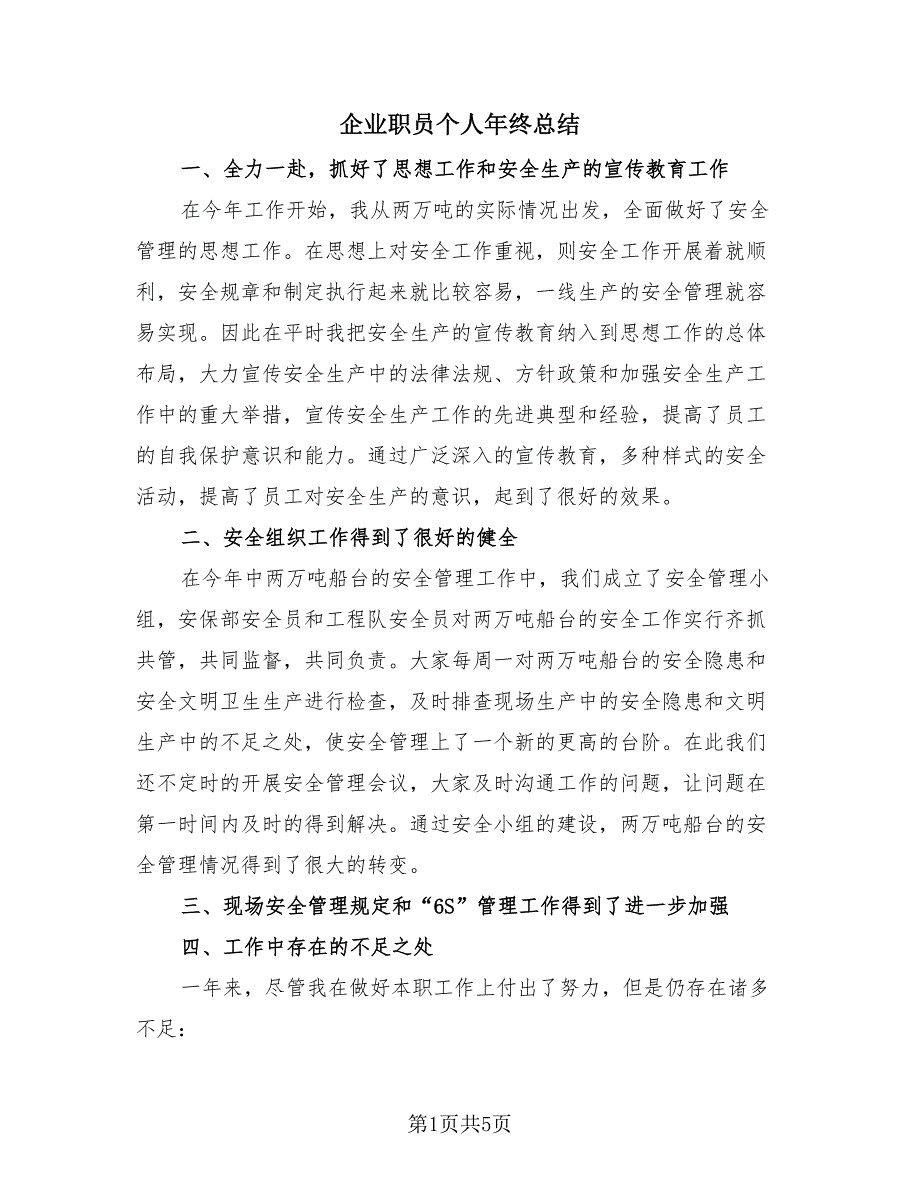 企业职员个人年终总结
一、全力一赴，抓好了思想工作和安全生产的宣传教育工作
在今年工作开始，我从两万吨的实际情况出发，全面做好了安全
管理的思想工作。在思想上对安全工作重视，则安全工作开展着就顺
利，安全规章和制定执行起来就比较容易，一线生产的安全管理就容
易实现。因此在平时我把安全生产的宣传教育纳入到思想工作的总体
布局，大力宣传安全生产中的法律法规、方针政策和加强安全生产工
作中的重大举措，宣传安全生产工作的先进典型和经验，提高了员工
的自我保护意识和能力。通过广泛深入的宣传教育，多种样式的安全
活动，提高了员工对安全生产的意识，起到了很好的效果。
二、安全组织工作得到了很好的健全
在今年中两万吨船台的安全管理工作中，我们成立了安全管理小
组，安保部安全员和工程队安全员对两万吨船台的安全工作实行齐抓
共管，共同监督，共同负责。大家每周一对两万吨船台的安全隐患和
安全文明卫生生产进行检查，及时排查现场生产中的安全隐患和文明
生产中的不足之处，使安全管理上了一个新的更高的台阶。在此我们
还不定时的开展安全管理会议，大家及时沟通工作的问题，让问题在
第一时间内及时的得到解决。通过安全小组的建设，两万吨船台的安
全管理情况得到了很大的转变。
三、现场安全管理规定和“6S”管理工作得到了进一步加强
四、工作中存在的不足之处
一年来，尽管我在做好本职工作上付出了努力，但是仍存在诸多
不足：
第1页共5页